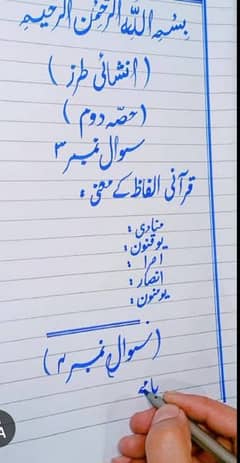 بسم اللہ الرحمٰن الرحیم
(انشائی طرز)
(حصہ دوم)
سوال نمبر ۳
قرآنی الفاظ کے معنی:
منادی:
یوقنون:
امرا:
انصار:
یومنون:
(سوال نمبر ۴)